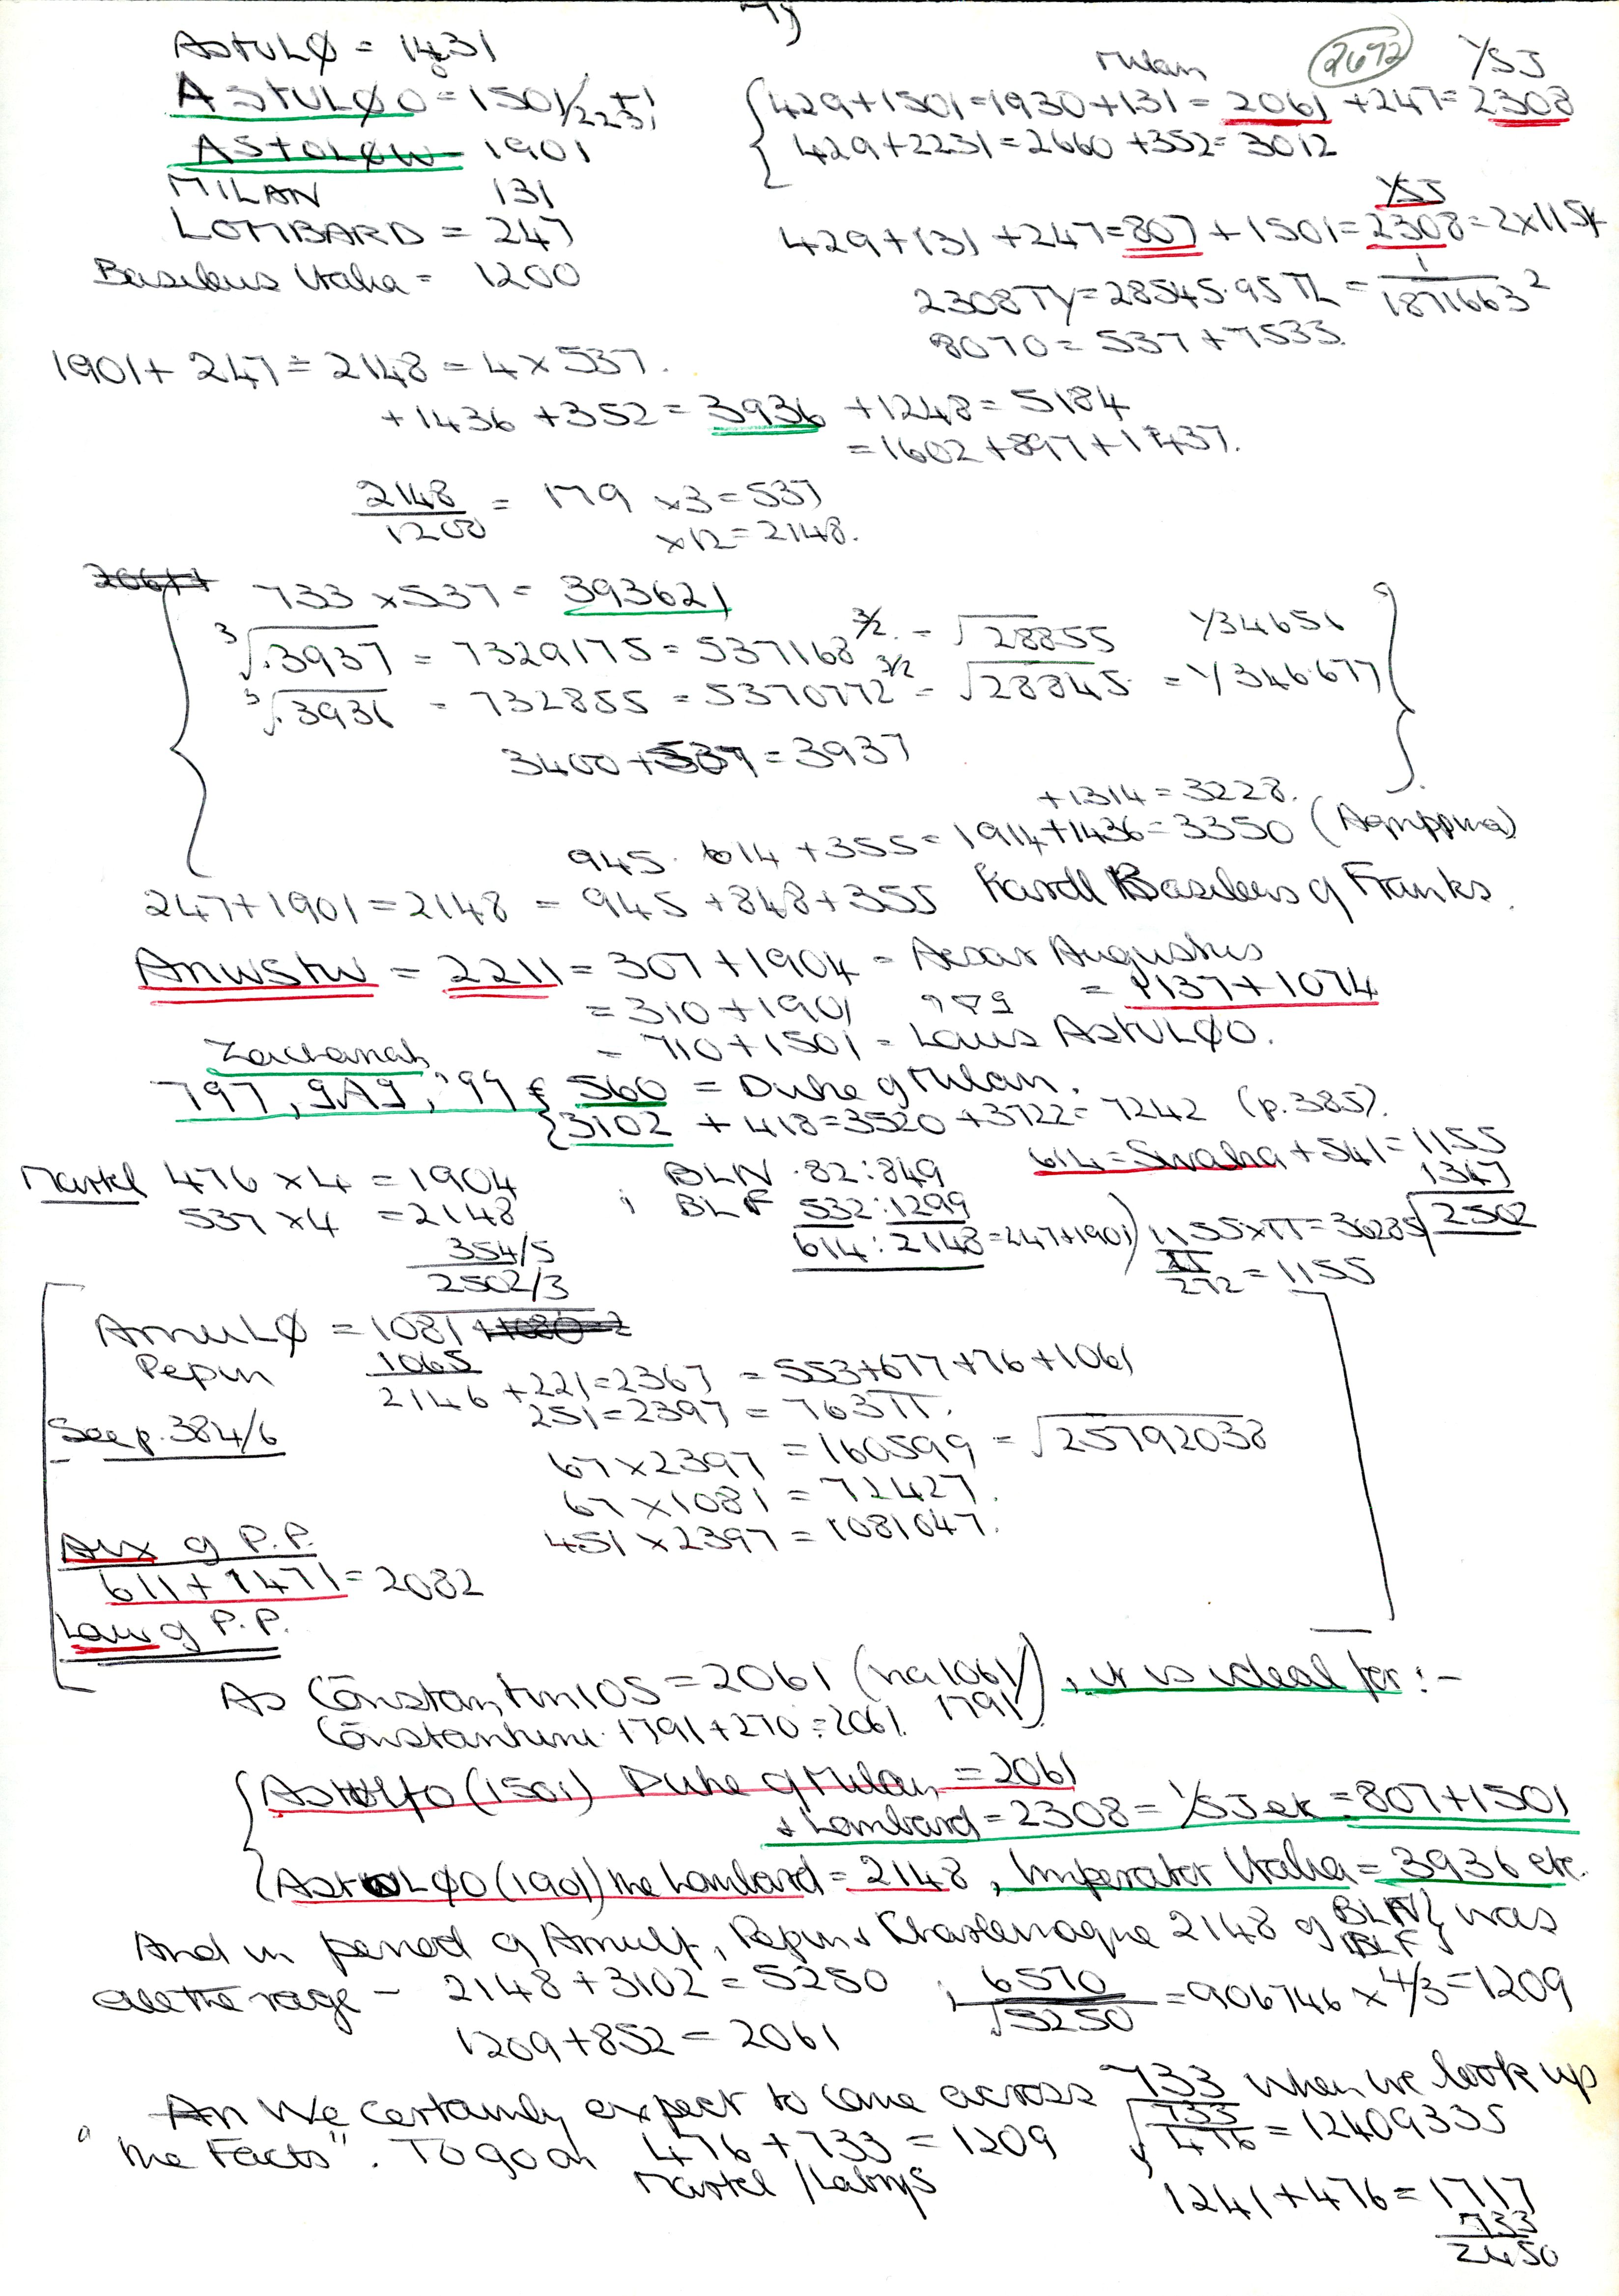 AstuLØ = 1431
AStULØO = 1501/2231 +1
AStOLØW = 1901
MILAN 131
LOMBARD = 247
Basileus Italia = 1200
2672
Milan YSJ
429+1501=1930+131= 2061 +247= 2308
429+2231=2660 +352= 3012
YSJ
429+131+247=807+1501=2308=2x1154
2308TY=28545.95TL = 1/1871663²
8070=537+7533.
1901+247=2148=4x537.
+1436+352=3936 +1248=5184
=1602+897+1437.
2148/1200 = 179 x3=537
x12=2148.
733x537= 393621
³√.3937 = 7329175=537168 3/2 = √28855 1/34651
³√.3936 = 732855=5370772 3/2 = √28845 = 1/346.677
3400+537=3937
+1314=3228.
945. 614+355=1914+1436=3350 (Agrippina)
247+1901=2148 = 945+848+355 Karol Basileus of Franks.
AnwStw = 2211=307+1904= Aesar Augustus
= 310+1901 = 1137+1074
= 710+1501= Laus AStULØO.
Zachariah
797, 9A9, '99 { 560 = Duke of Milan.
{3102 + 418=3520+3722=7242 (p.385).
Martel 476x4=1904
537x4 =2148
354/5
2502/3
BLN .82:849
; BLF 532:1299
614:2148=247+1901)
614=Swaha+541=1155
1347
2502
1155xπ=36285
π/272=1155
ArnuLØ =1081
Pepin 1065
2146 +221=2367 =553+677+76+1061
251=2397 = 763π.
See p.384/6
67x2397 =160599 = √25792038
67x1081 = 72427.
451x2397=1081047.
Aux of P.P.
611+1471=2082
Laus of P.P.
As Constantinios=2061 (via 1061/1791), it is ideal for:-
Constantini.1791+270=2061.
{Astolfo (1501) Duke of Milan =2061
+Lombard=2308=YSJ etc=807+1501
{AstoLØO (1901) the Lombard=2148, Imperator Italia=3936 etc.
And in period of Arnulf, Pepin & Charlemagne 2148 of BLN/BLF} was
all the rage - 2148+3102=5250 ; 6570/√5250 =906746x4/3=1209
1209+852=2061
We certainly expect to come across 733 when we look up
"the Facts". To go on 476+733=1209 √733/476=12409335
Martel/Labrys
1241+476=1717
733
2450